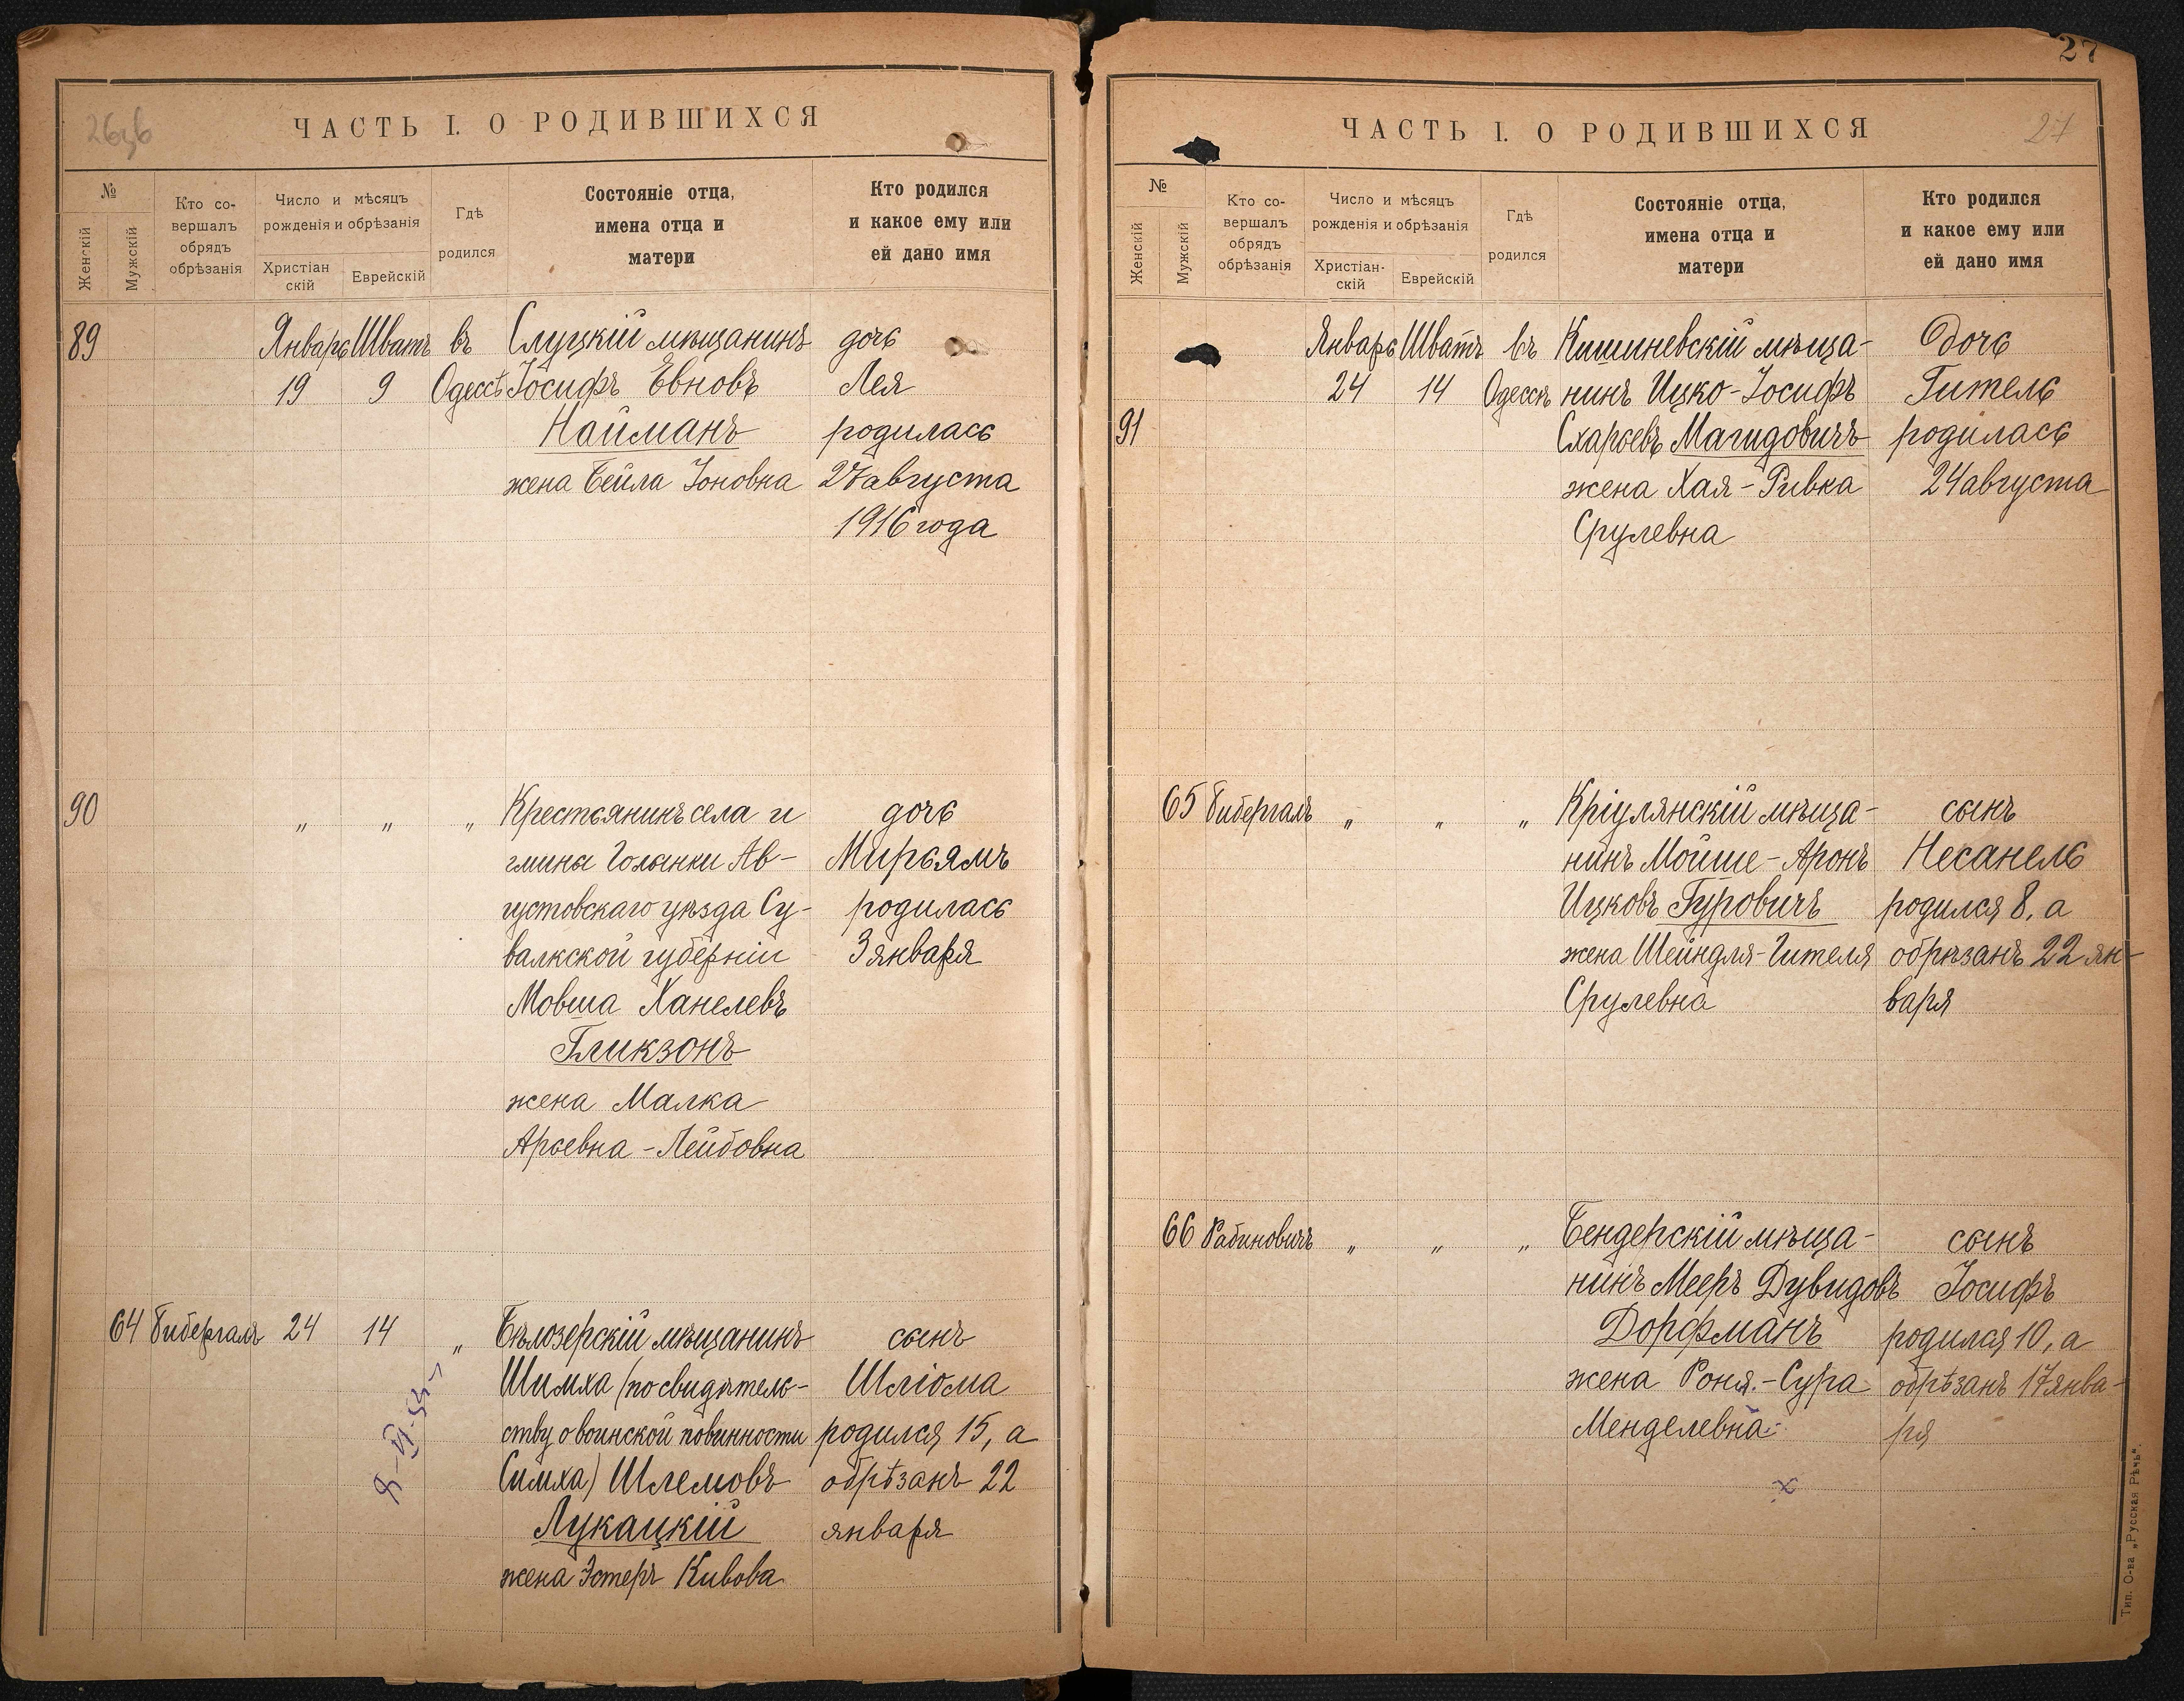 26об
ЧАСТЬ I. О РОДИВШИХСЯ
№
Женскій
Мужскій
Кто со-
вершалъ
обрядъ
обрѣзанія
Число и мѣсяцъ
рожденія и обрѣзанія
Христіан
скій
Еврейскій
Гдѣ
родился
Состояніе отца,
имена отца и
матери
Кто родился
и какое ему или
ей дано имя
89 Январь Шватъ въ Слуцкій мѣщанинъ дочь
19 9 Одессѣ Іосифъ Евновъ Лея
Найманъ родилась
жена Бейла Іоновна 27 августа
1916 года
90 „ „ „ Крестьянинъ села и дочь
гмины Голынки Ав- Мирьямъ
густовскаго уѣзда Су- родилась
валкской губерніи 3 января
Мовша Ханелевъ
Гликзонъ
жена Малка
Арьевна-Лейбовна
64 Бибергалъ 24 14 „ Бѣлозерскій мѣщанинъ сынъ
Шимха (по свидѣтель- Шліома
ству о воинской повинности родился 15, а
Симха) Шлемовъ обрѣзанъ 22
Лукацкій января
жена Эстеръ Кивова
27
ЧАСТЬ I. О РОДИВШИХСЯ
27
№
Женскій
Мужскій
Кто со-
вершалъ
обрядъ
обрѣзанія
Число и мѣсяцъ
рожденія и обрѣзанія
Христіан-
скій
Еврейскій
Гдѣ
родился
Состояніе отца,
имена отца и
матери
Кто родился
и какое ему или
ей дано имя
Январь Шватъ въ Кишиневскій мѣща- Дочь
24 14 Одессѣ нинъ Ицко-Іосифъ Гитель
91 Схарьевъ Магидовичъ родилась
жена Хая-Ривка 24 августа
Срулевна
65 Бибергалъ „ „ „ Кріулянскій мѣща- сынъ
нинъ Мойше-Аронъ Несанель
Ицковъ Гуровичъ родился 8, а
жена Шейндля-Гителя обрѣзанъ 22 ян-
Срулевна варя
66 Рабиновичъ „ „ „ Бендерскій мѣща- сынъ
нинъ Мееръ Дувидовъ Іосифъ
Дорфманъ родился 10, а
жена Роня-Сура обрѣзанъ 17 янва-
Менделевна ря
х
Тип. О-ва „Русская Рѣчь".